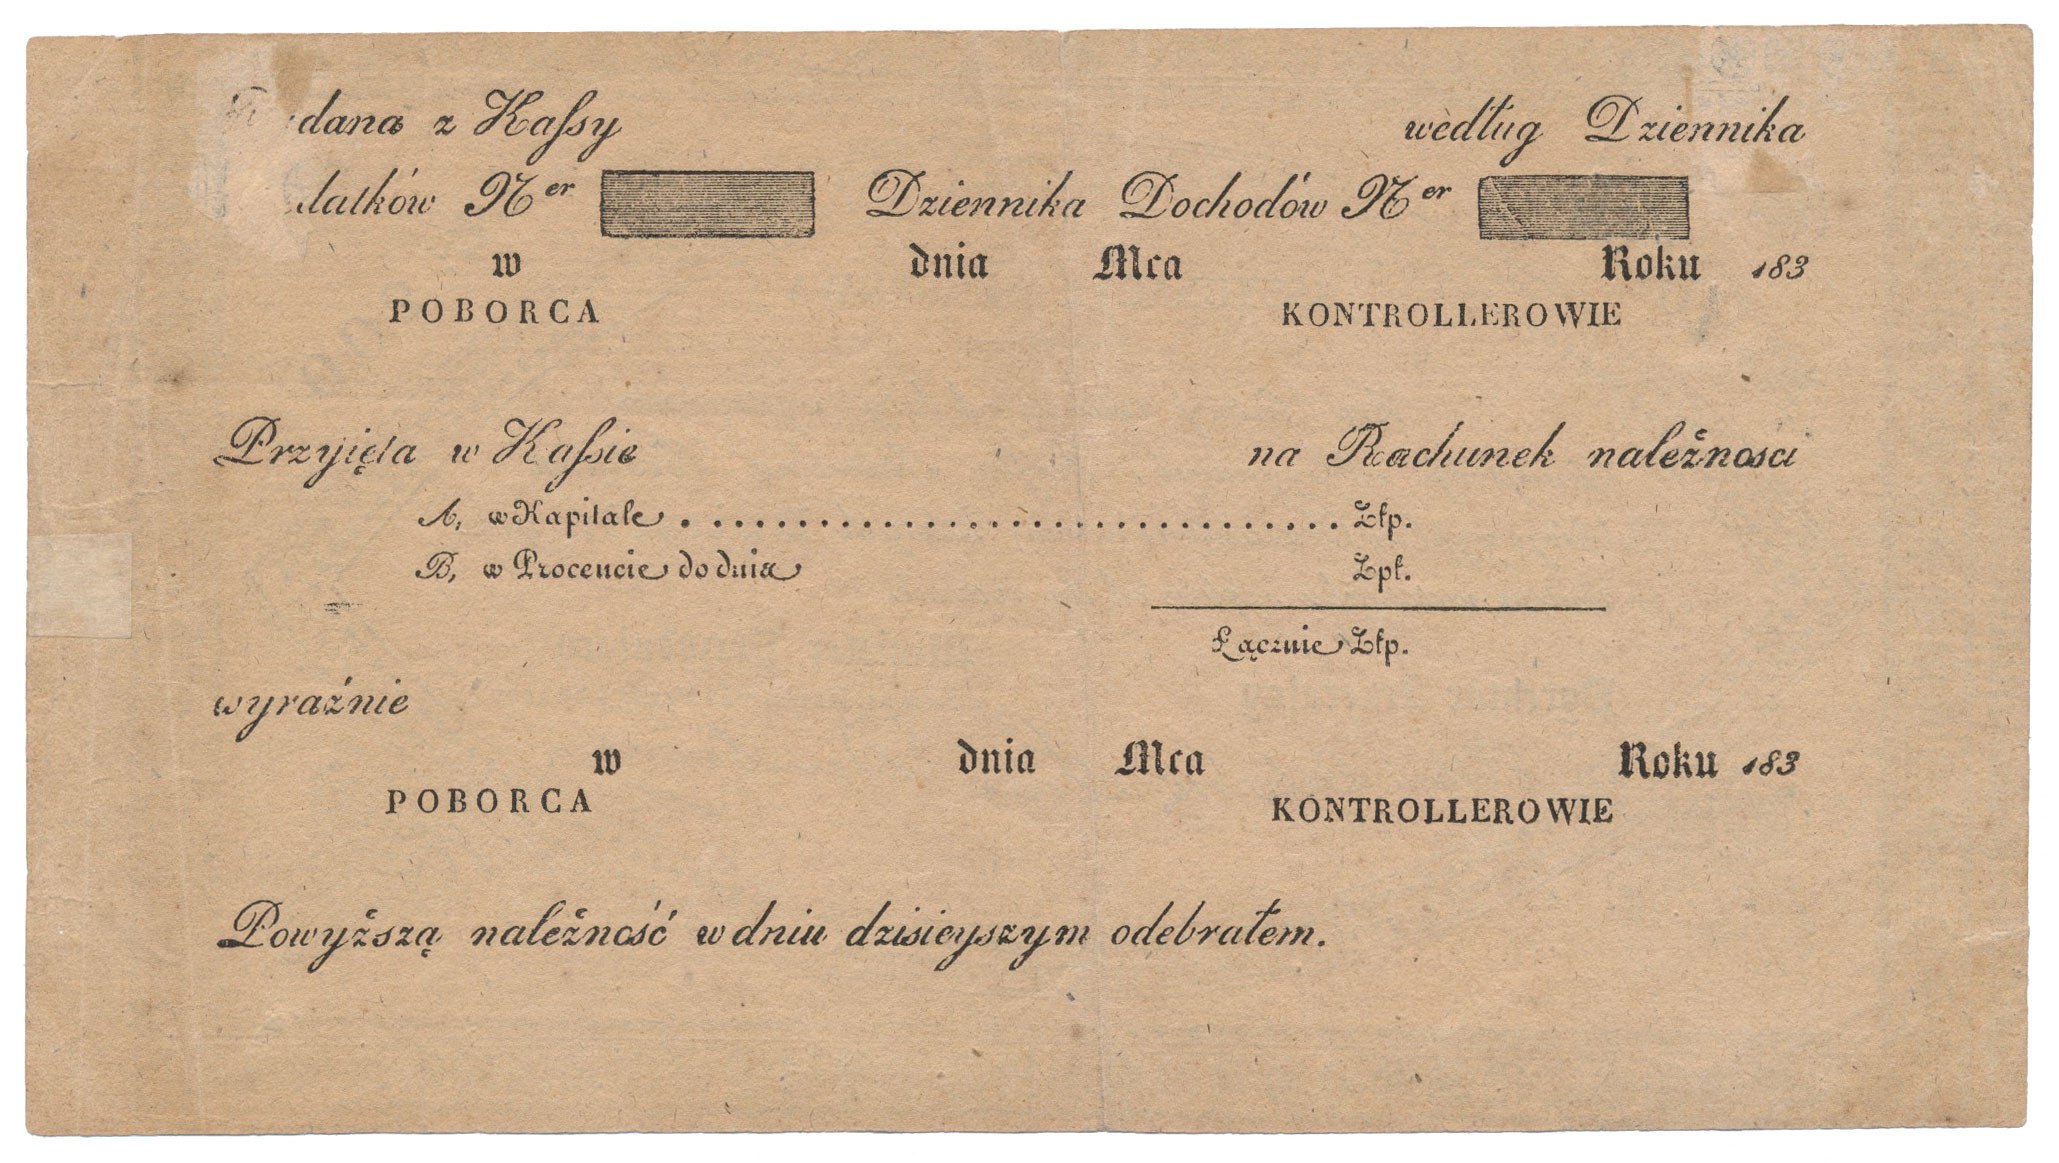 dana z Kaſsy według Dziennika
datków Ner Dziennika Dochodów Ner
w dnia Mca Roku 183
POBORCA KONTROLLEROWIE
Przyięta w Kaſsie na Rachunek należnosci
A, w Kapitale ................................ Złp.
B, w Procencie do dnia Zpł.
Łącznie Złp.
wyraźnie
w dnia Mca Roku 183
POBORCA KONTROLLEROWIE
Powyższą należność w dniu dzisieyszym odebrałem.